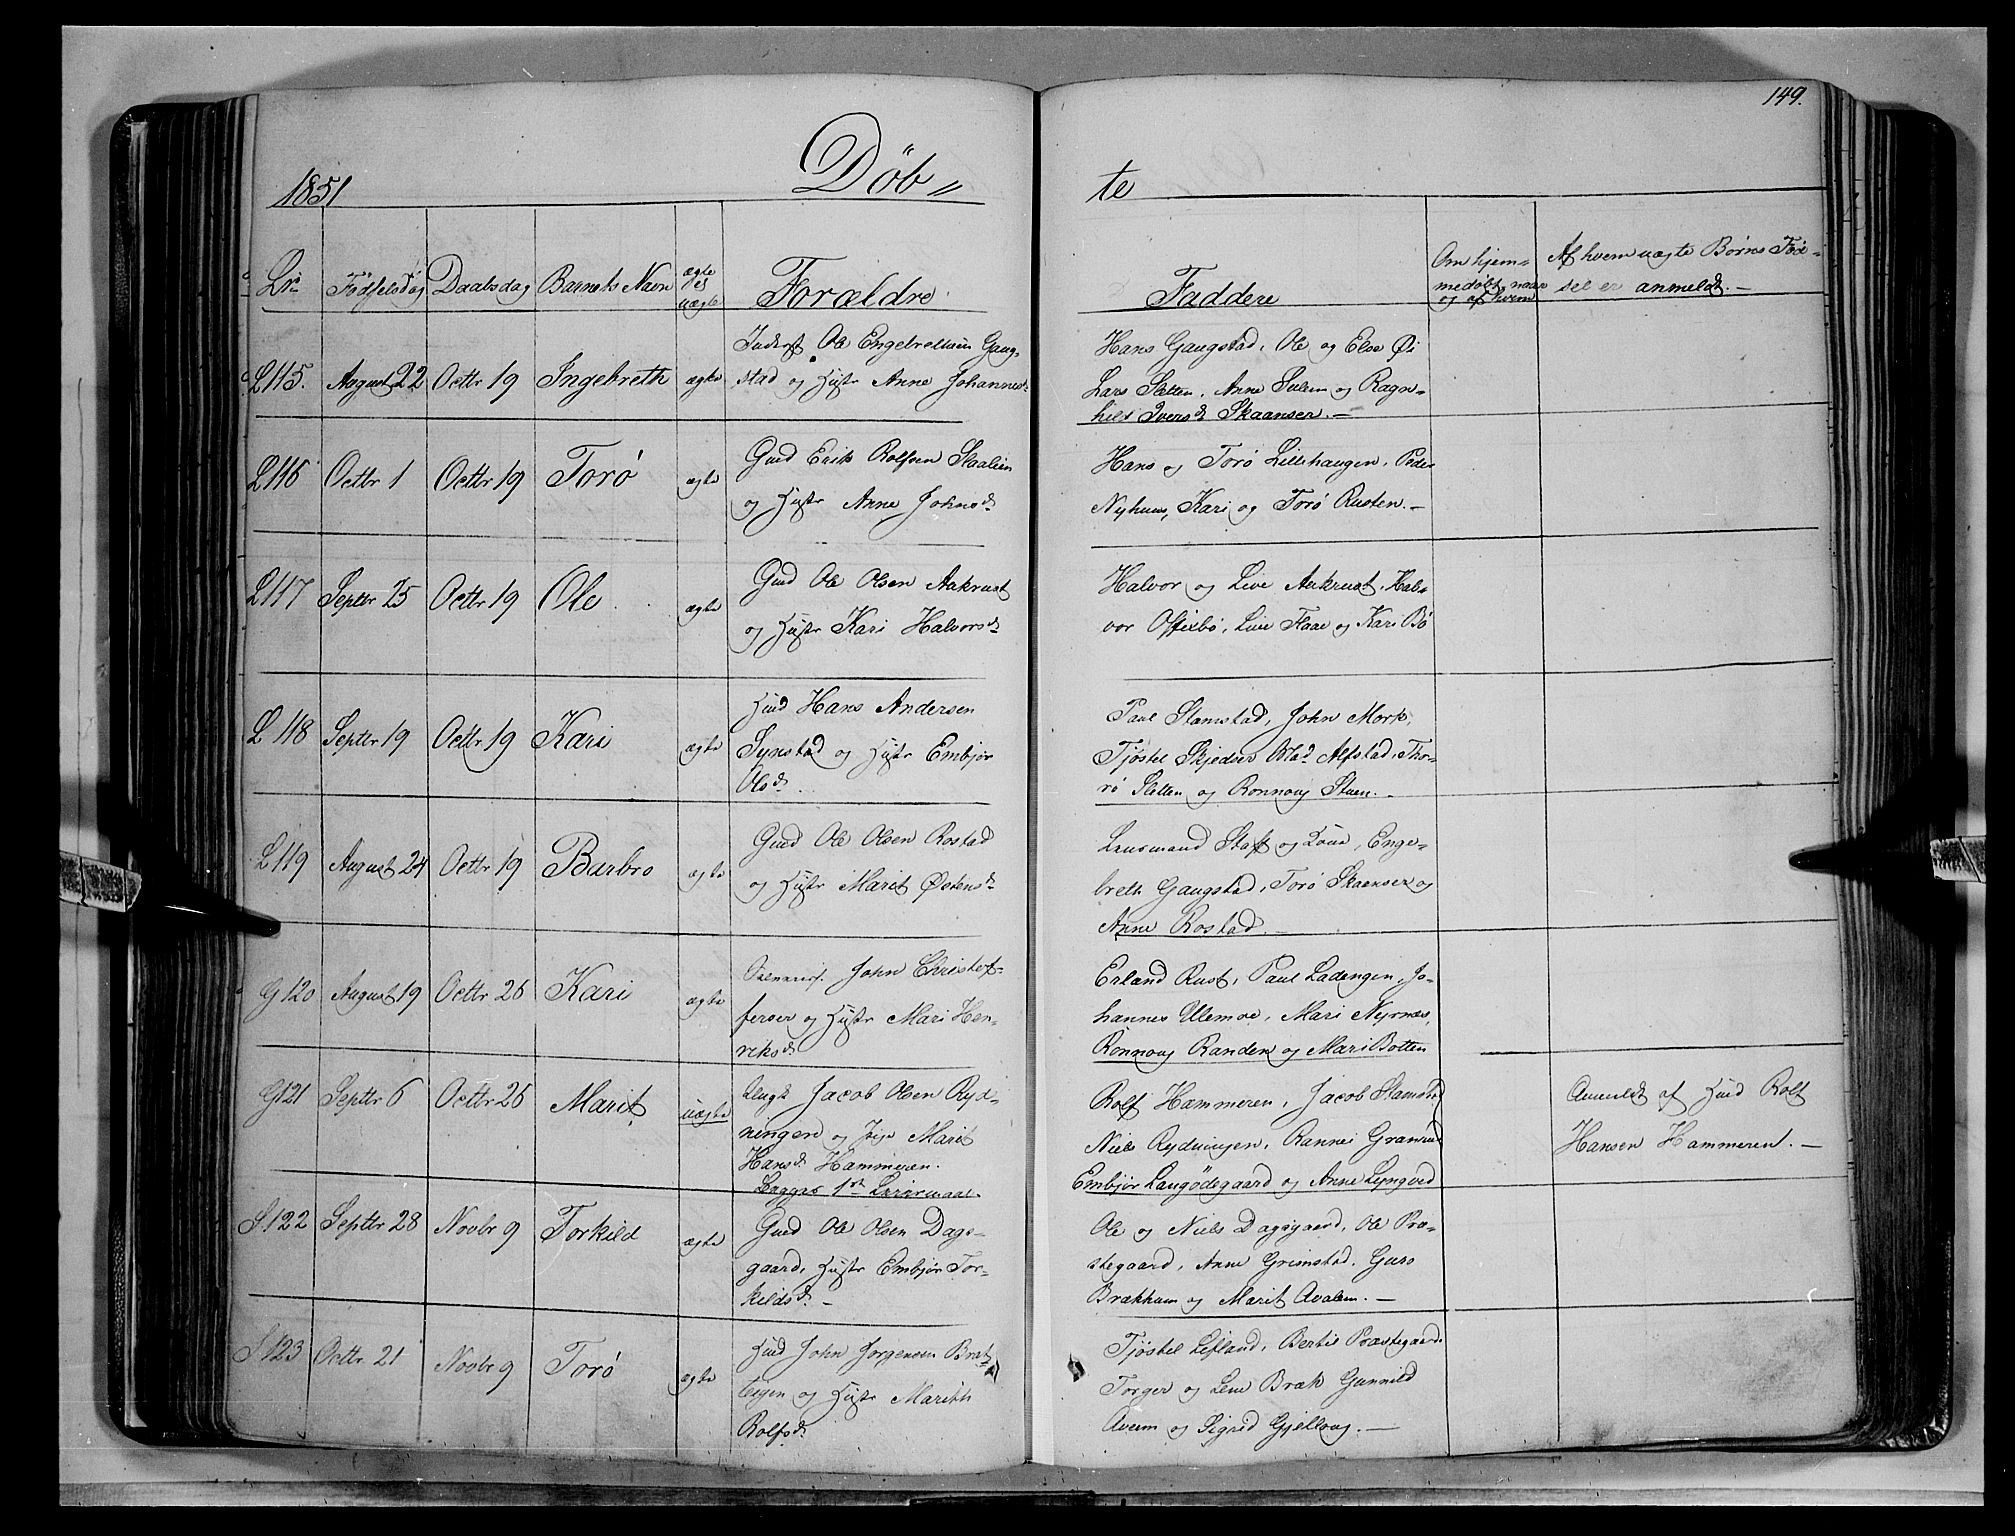 149.
1851 Döb=
te
Lr. Födselsdag Daabsdag Barnets Navn ægte el uægte Forældre
Faddere Om hjem=
medöbt, naar
og af hvem Af hvem uægte Börns Föd=
sel er anmeldt.—
L115. August 22 Octbr 19 Ingebreth ægte Inderst Ole Engebrethsen Gaug=
stad og Hustr Anne Johannesd.
Hans Gaugstad, Ole og Else Öi
Lars Sletten, Anne Sulem og Ragn=
hild Iversd. Skaanser.—
L116 Octbr 1 Octbr 19 Torö ægte Gmd Erik Rolfsen Staalien
og Hustr Anne Johnsd.
Hans og Torö Lillehaugen, Peder
Nyhuus, Kari og Torö Rusten.—
L117 Septbr 25 Octbr 19 Ole ægte Gmd Ole Olsen Aakrust
og Hustr Kari Halvorsd.
Halvor og Live Aakrust, Hal=
vor Offixbö, Live Flaae og Kari Bö
L118 Septbr 19 Octbr 19 Kari ægte Hmd Hans Andersen
Synstad og Hustr Embjör
Olsd.
Paul Stamstad, John Mork,
Tjöstel Skjedser Mad. Alfstad, Tho=
rö Sletten og Ronnoug Stuen.
L119 August 24 Octbr 19 Barbro ægte Gmd Ole Olsen Rostad
og Hustr Marit Östensd.
Lensmand Staff og Kone, Enge=
breth Gaugstad, Torö Skaanser og
Anne Rostad.—
G120 August 19 Octbr 26 Kari ægte John Christof=
fersen og Hustr Mari Hen=
riksd.
Erland Rust, Paul Ladengen, Jo=
hannes Ulemoe, Mari Nyrnæs,
Rönnoug Randen og Mari Botten
G121 Septbr 6 Octbr 26 Marit uægte Ungk Jacob Olsen Ryd=
ningen og Pige Marit
Hansd. Hammeren.
Begges 1ste Leiermaal.
Rolf Hammeren, Jacob Stamstad
Niels Rydningen, Rannei Gramrud
Embjör Laugödegaard og Anne Lyngved
Anmeldt af Hmd Rolf
Hansen Hammeren.—
S.122 Septbr 28 Novbr 9 Torkild ægte Gmd Ole Olsen Dags=
gaard, Hustr Embjör Tor=
kildsd.—
Ole og Niels Dagsgaard, Ole Præ=
stegaard, Anne Grimstad, Guro
Brækhuus og Marit Avalem.—
S123 Octbr 21 Novbr 9 Torö ægte Hmd John Jörgensen Brat=
teigen og Hustr Marith
Rolfsd.
Tjöstel Lefland, Bertil Præstegaard
Torger og Lene Bræk Gunnild
Aveim og Sigrid Gjelloug.—